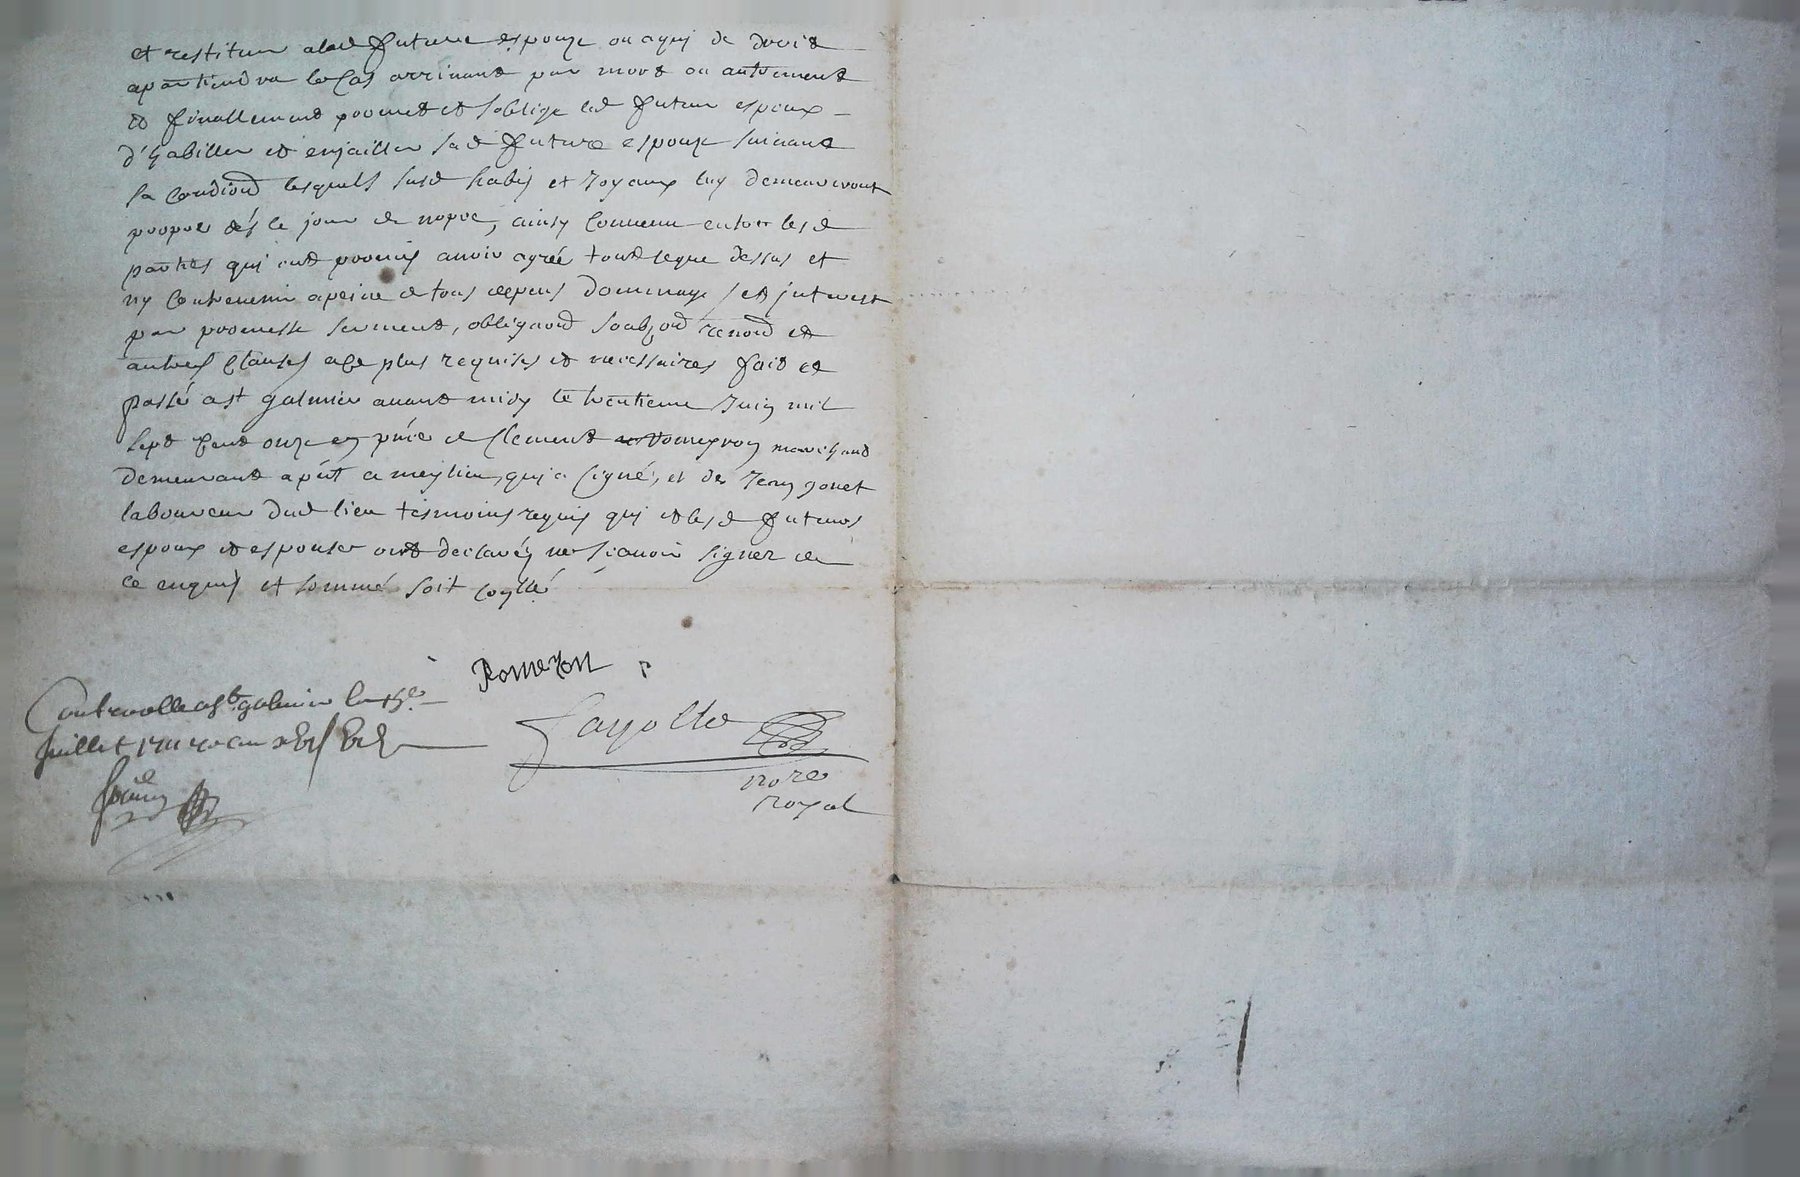 et restituer alad future espouze ou a quj de droit
apartiendra le cas arrivant par mort ou autrement
et finallement promet et soblige led futur espoux
d'habiller et enjailler sad future espouze suivant
sa condiond lesquels susd habis et joyaux luy demeureront
propre dés le jour de nopce, ainsy convenu entre lesd
parties quj ont promis avoir agréé tout ceque dessus et
ny contrevenir a peine de tous depens dommages et jnterest
par promesse serment, obligaond soubzond renond et
autres clauses ace plus requises et necessaires fait et
passé a st galmier avant midy le trentieme Juin mil
sept cent onze en pñce de Clement Romeyron marchand
demeurant apñt a meylieu, quj a signé, et de Jean jonet
laboureur dud lieu tesmoins requis quj et lesd futurs
espoux et espouse ont declarés ne scavoir signer de
ce enquis et sommé soit coñllé
Romeron
Controolle a st galmier le 15e
Juillet 1711
fayolle
nore
royal